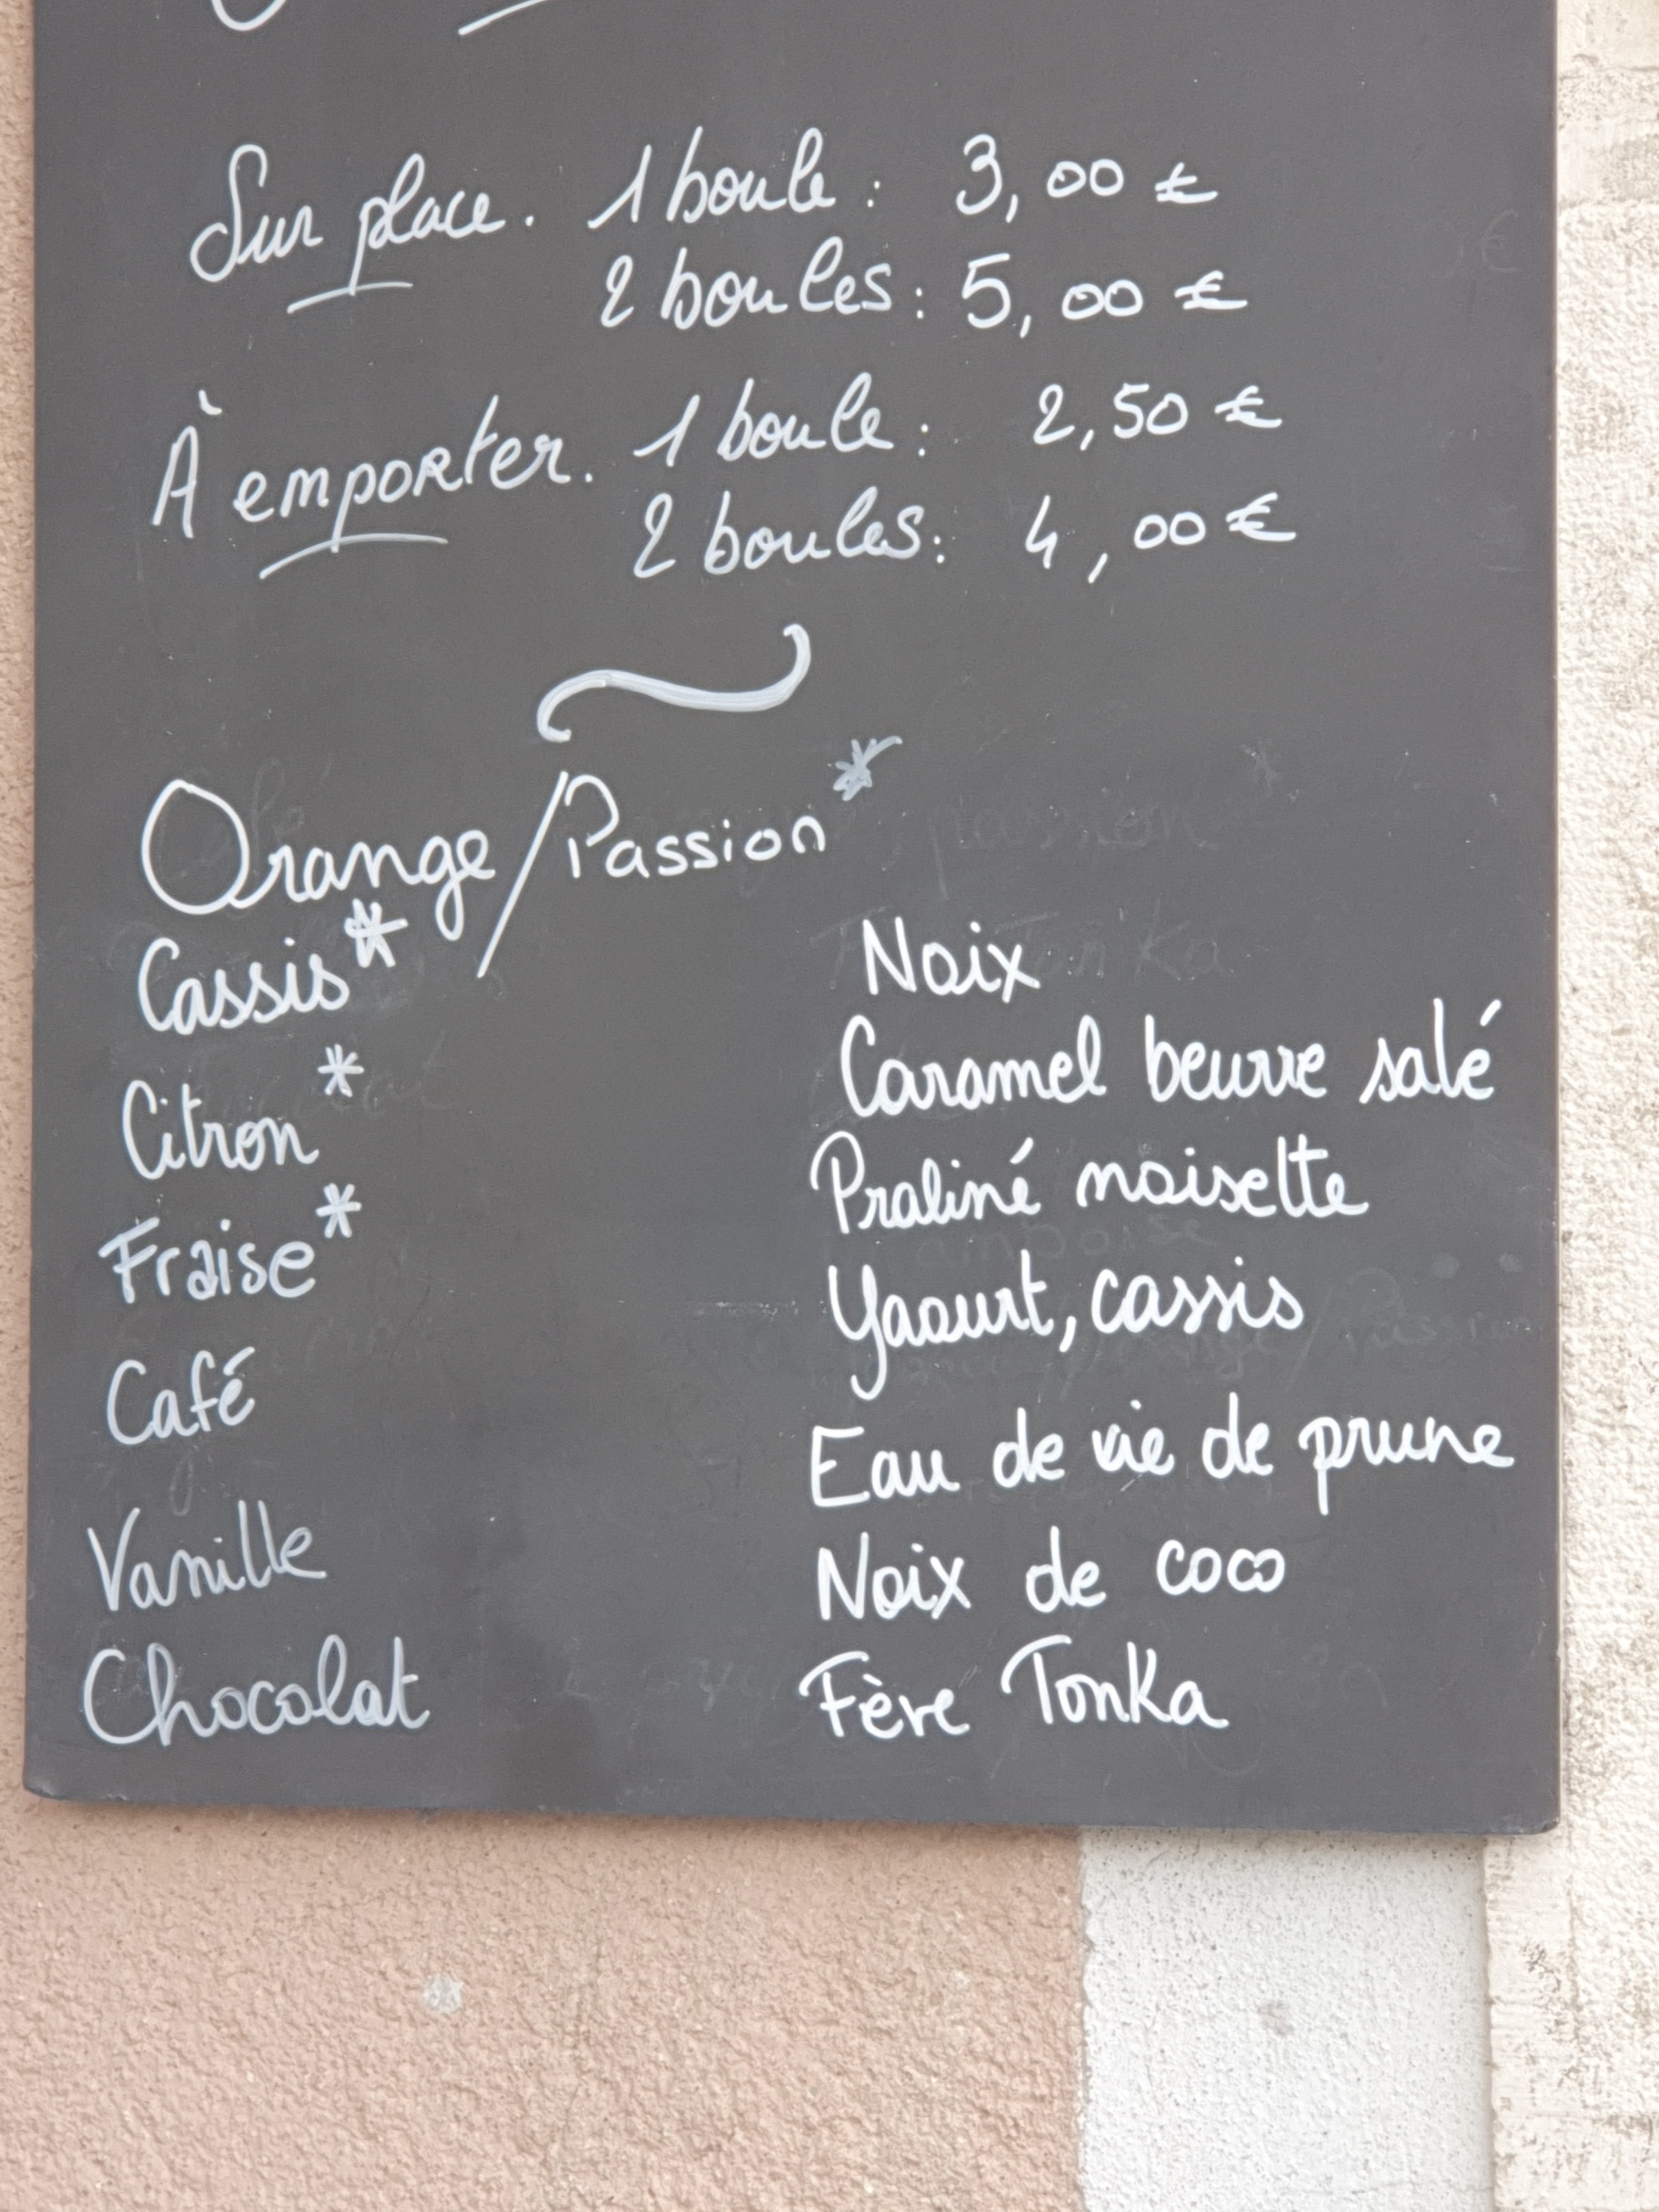 Sur place. 1 boule : 3,00 €
2 boules : 5,00 €
À emporter. 1 boule : 2,50 €
2 boules : 4,00 €
Orange/Passion*
Cassis*
Citron*
Fraise*
Café
Vanille
Chocolat
Noix
Caramel beurre salé
Praliné noisette
Yaourt, cassis
Eau de vie de prune
Noix de coco
Fève Tonka